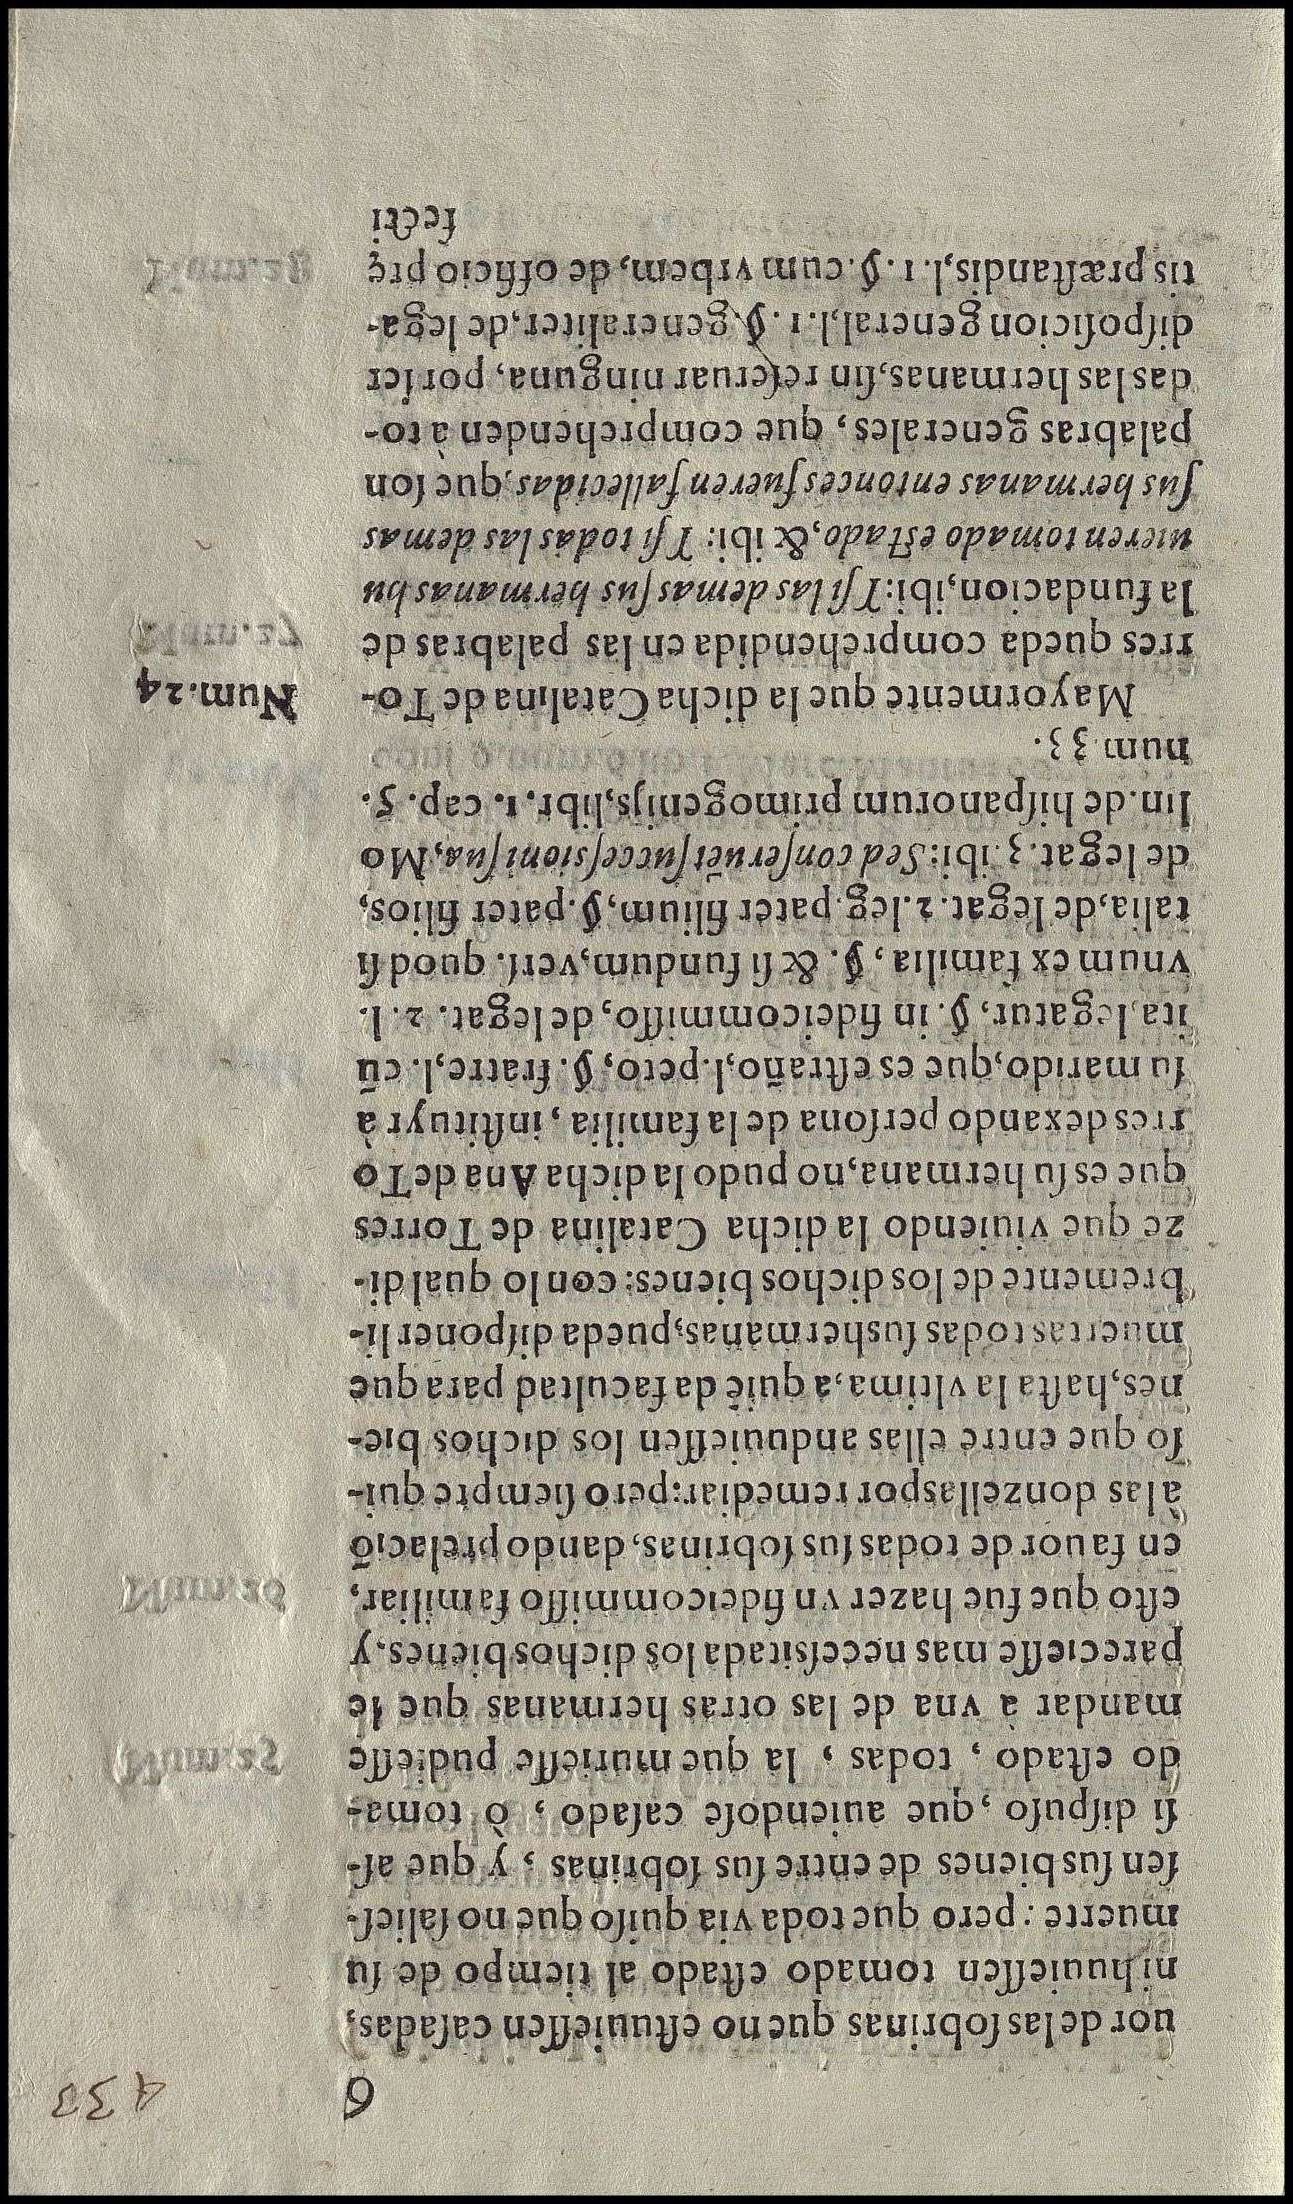 6
433
uor de las sobrinas que no estuuiessen casadas,
ni huuiessen tomado estado al tiempo de su
muerte: pero que toda via quiso que no salies-
sen sus bienes de entre sus sobrinas, y que as-
si dispuso, que auiendose casado, ò toma-
do estado, todas, la que muriesse pudiesse
mandar à vna de las otras hermanas que le
pareciesse mas necessitada los dichos bienes, y
esto que fue hazer vn fideicommisso familiar,
en fauor de todas sus sobrinas, dando prelaciõ
à las donzellas por remediar: pero siempre qui-
so que entre ellas anduuiessen los dichos bie-
nes, hasta la vltima, a quiẽ da facultad para que
muertas todas sus hermanas, pueda disponer li-
bremente de los dichos bienes: con lo qual di-
ze que viuiendo la dicha Catalina de Torres
que es su hermana, no pudo la dicha Ana de To
rres dexando persona de la familia, instituyr à
su marido, que es estraño, l. peto, §. fratre, l. cũ
ita legatur, §. in fideicommisso, de legat. 2. l.
vnum ex familia, §. & si fundum, vers. quod si
talia, de legat. 2. leg. pater filium, §. pater filios,
de legat. 3. ibi: Sed conseruẽt successioni sua, Mo
lin. de hispanorum primogenijs, libr. 1. cap. 5.
num 33.
Mayormente que la dicha Catalina de To-
Num. 24
rres queda comprehendida en las palabras de
la fundacion, ibi: Y si las demas sus hermanas hu
uieren tomado estado, & ibi: Y si todas las demas
sus hermanas entonces fueren fallecidas, que son
palabras generales, que comprehenden à to-
das las hermanas, sin reseruar ninguna, por ser
disposicion general, l. 1. §. generaliter, de lega-
tis præstandis, l. 1. §. cum vrbem, de officio prę
fecti